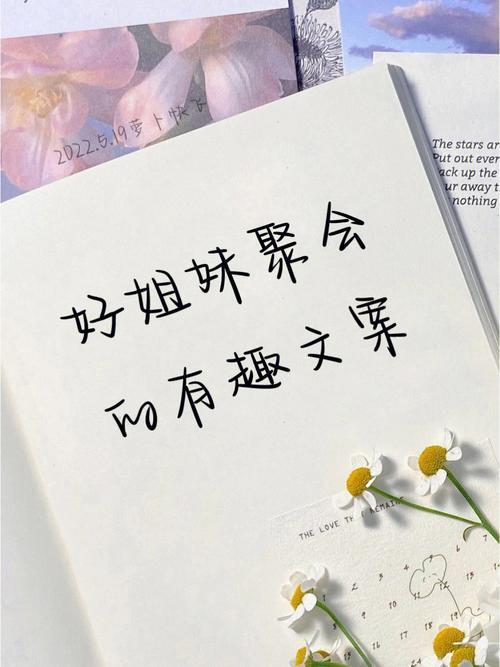 2022.5.19萝卜快飞
The stars ar
Put out ever
ack up the
ur away t
nothing
好姐妹聚会
的有趣文案
THE LOVE TH
REMAINS